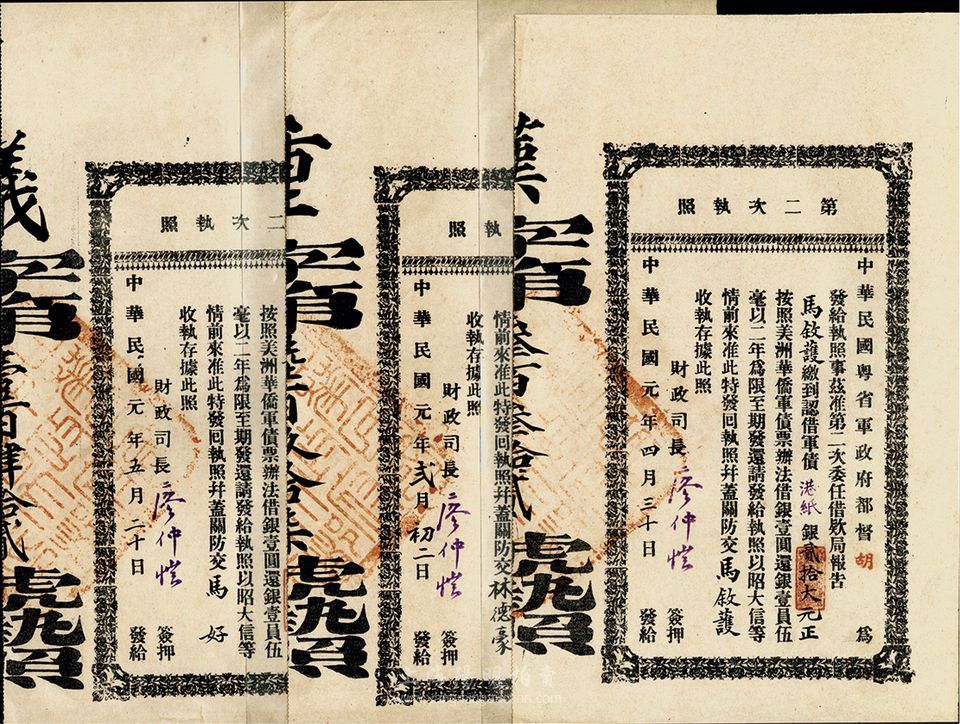 第二次執照
中華民國粵省軍政府都督胡 為
發給執照事茲准第二次委任借欵局報告
馬敘護繳到認借軍債港紙銀貳拾大元正
按照美洲華僑軍債票辦法借銀壹圓還銀壹員伍
毫以二年為限至期發還請發給執照以昭大信等
情前來准此特發回執照幷蓋關防交馬敘護
收執存據此照
財政司長廖仲愷簽押
中華民國元年四月三十日發給
漢字第叁百叁拾貳號
執照
情前來准此特發回執照幷蓋關防交林德豪
收執存據此照
財政司長廖仲愷簽押
中華民國元年弍月初二日發給
字第 百 拾 號
二次執照
按照美洲華僑軍債票辦法借銀壹圓還銀壹員伍
毫以二年為限至期發還請發給執照以昭大信等
情前來准此特發回執照幷蓋關防交馬 好
收執存據此照
財政司長廖仲愷簽押
中華民國元年五月二十日發給
義字第壹百肆拾貳號